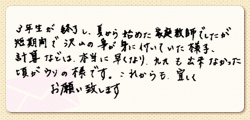 3年生が終了し、夏から始めた家庭教師でしたが
短期間で沢山の事が身に付いていた様子、
計算などは、本当に早くなり、九九も出来なかった
頃がウソの様です。これからも、宜しく
お願い致します